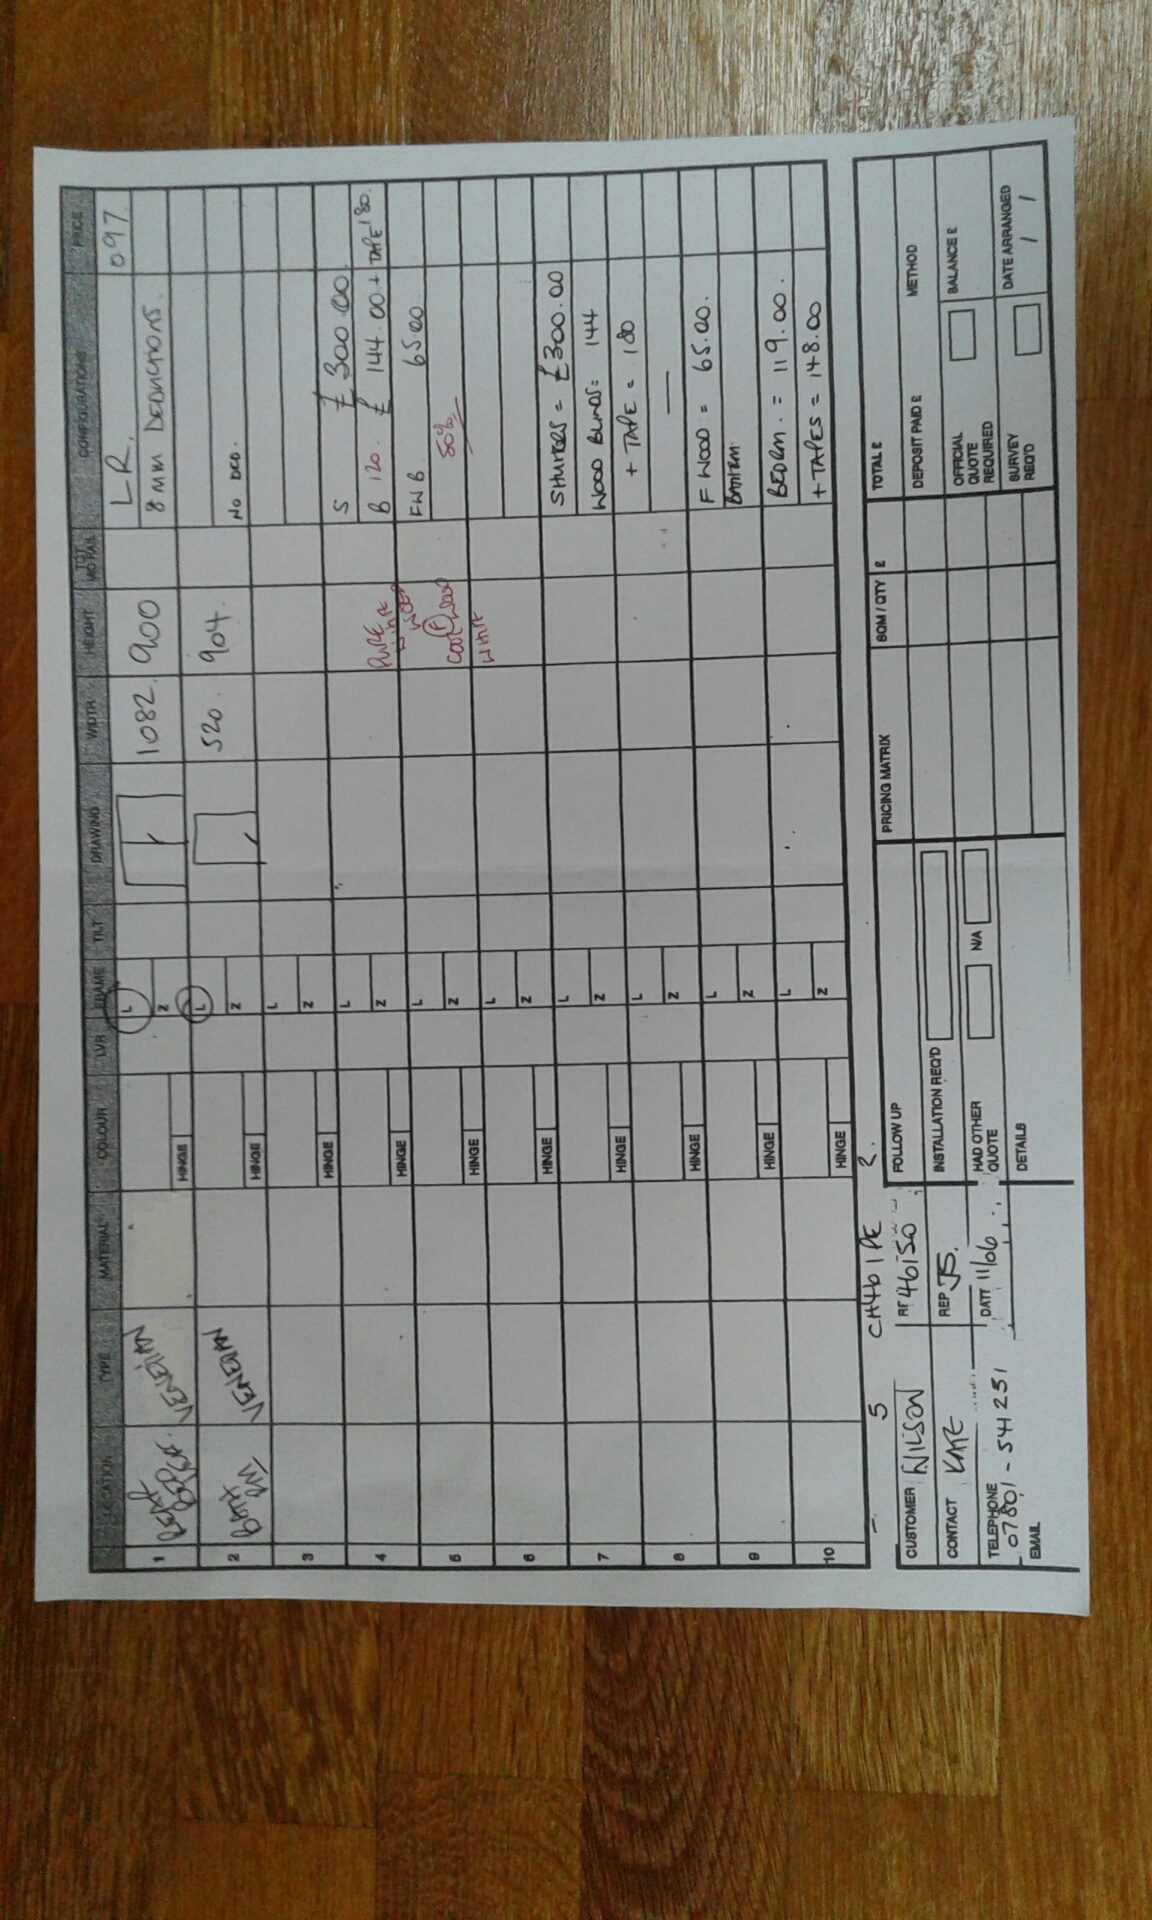 LOCATION TYPE MATERIAL COLOUR LVR FRAME TILT DRAWING WIDTH HEIGHT TOT MID RAIL CONFIGURATIONS PRICE
1 VENETIAN HINGE L Z 1082. 900 LR. 0.97
8MM DEDUCTIONS.
2 VENETIAN HINGE L Z 520. 904.
NO DED.
3 HINGE L Z
S £300.00
4 HINGE L Z PURE WHITE B 120. £144.00 + TAPE 180.
5 HINGE L Z FWB 65.00
50%
WHITE
6 HINGE L Z
SHUTTERS = £300.00
7 HINGE L Z WOOD BLINDS = 144
+ TAPE = 180
8 HINGE L Z
9 HINGE L Z F WOOD = 65.00.
BATHRM.
10 HINGE L Z BEDRM. = 119.00.
+ TAPES = 148.00
5 CH46 1PE 2.
CUSTOMER WILSON
CONTACT KATE
TELEPHONE
07801-541251
EMAIL
REP JS.
DATE 11/06
FOLLOW UP
INSTALLATION REQ'D
HAD OTHER QUOTE N/A
DETAILS
PRICING MATRIX SQM / QTY £
TOTAL £
DEPOSIT PAID £ METHOD
OFFICIAL QUOTE REQUIRED BALANCE £
SURVEY REQ'D DATE ARRANGED / /